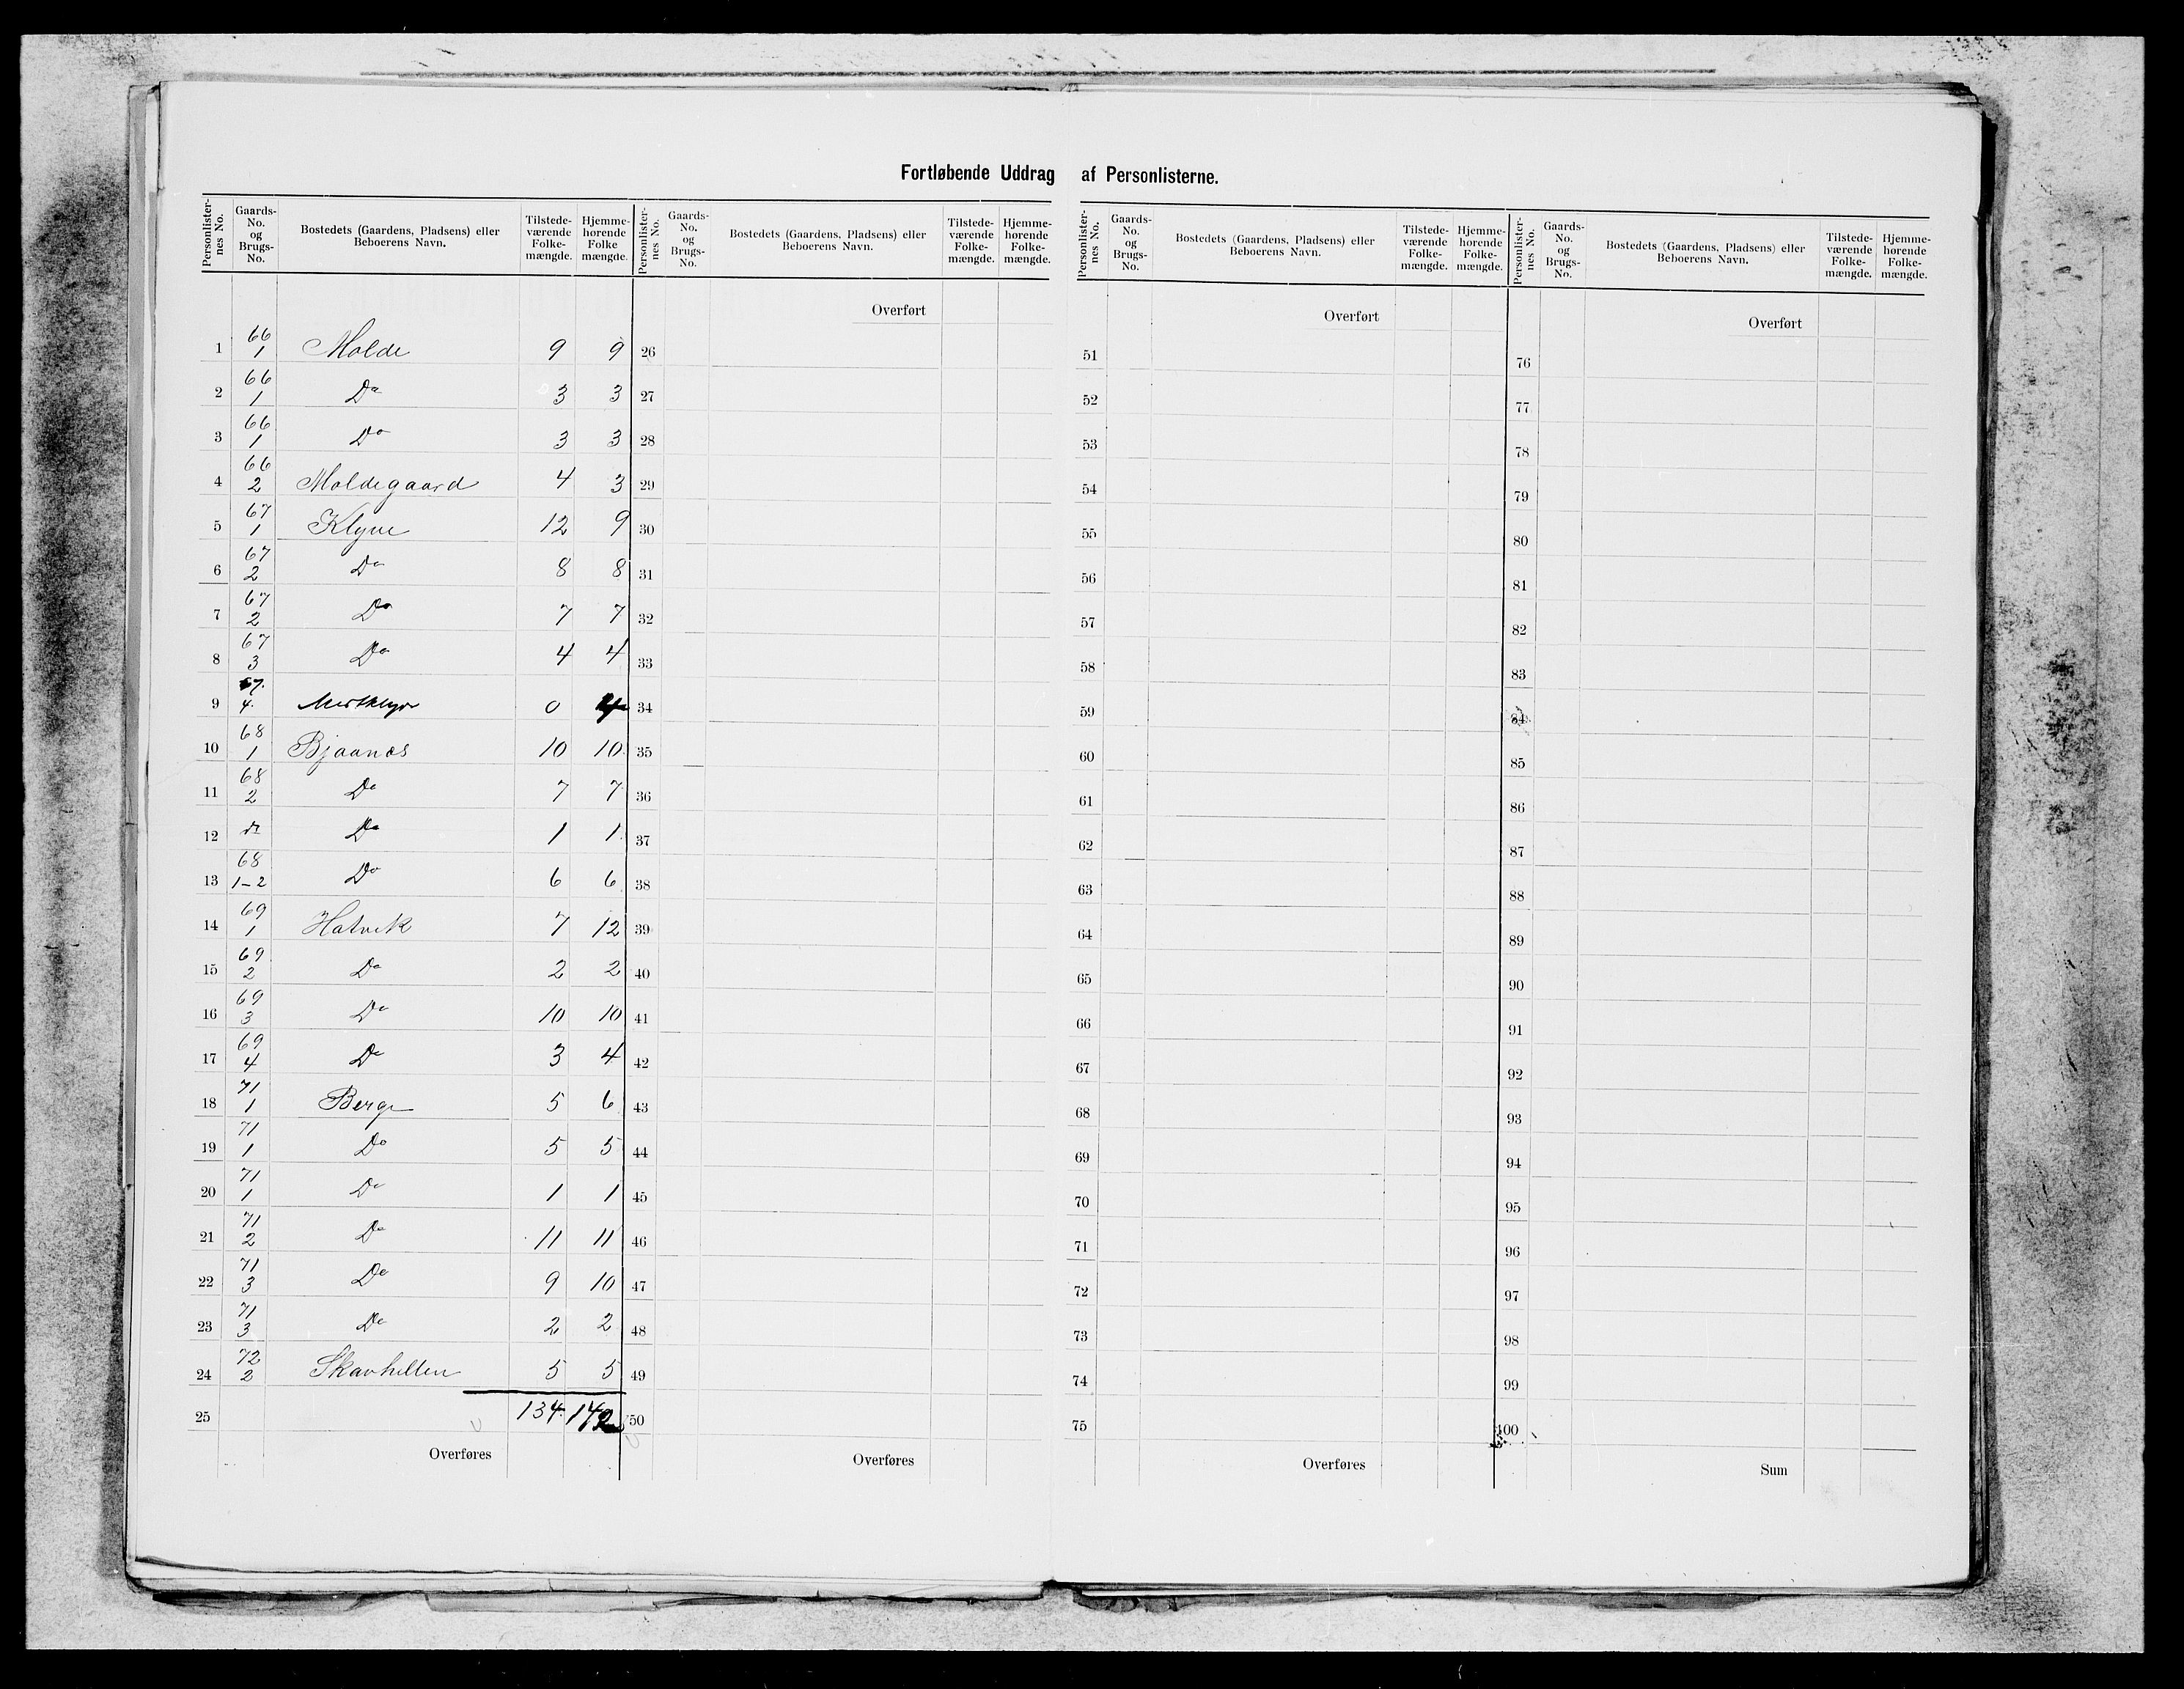 Fortløbende Uddrag af Personlisterne.
Personlisternes No. Gaards-No. og Brugs-No. Bostedets (Gaardens, Pladsens) eller Beboerens Navn. Tilstedeværende Folkemængde. Hjemmehørende Folkemængde.
1 66 1 Molde 9 9
2 66 1 Do 3 3
3 66 1 Do 3 3
4 66 2 Moldegaard 4 3
5 67 1 Klyve 12 9
6 67 2 Do 8 8
7 67 2 Do 7 7
8 67 3 Do 4 4
9 67. 4. 0 4
10 68 1 Bjaanæs 10 10
11 68 2 Do 7 7
12 do Do 1 1
13 68 1-2 Do 6 6
14 69 1 Hatvik 7 12
15 69 2 Do 2 2
16 69 3 Do 10 10
17 69 4 Do 3 4
18 71 1 Berge 5 6
19 71 1 Do 5 5
20 71 1 Do 1 1
21 71 2 Do 11 11
22 71 3 Do 9 10
23 71 3 Do 2 2
24 72 2 Skarhellen 5 5
25 134 142
Overføres
Personlisternes No. Gaards-No. og Brugs-No. Bostedets (Gaardens, Pladsens) eller Beboerens Navn. Tilstedeværende Folkemængde. Hjemmehørende Folkemængde.
Overført
26
27
28
29
30
31
32
33
34
35
36
37
38
39
40
41
42
43
44
45
46
47
48
49
50
Overføres
Personlisternes No. Gaards-No. og Brugs-No. Bostedets (Gaardens, Pladsens) eller Beboerens Navn. Tilstedeværende Folkemængde. Hjemmehørende Folkemængde.
Overført
51
52
53
54
55
56
57
58
59
60
61
62
63
64
65
66
67
68
69
70
71
72
73
74
75
Overføres
Personlisternes No. Gaards-No. og Brugs-No. Bostedets (Gaardens, Pladsens) eller Beboerens Navn. Tilstedeværende Folkemængde. Hjemmehørende Folkemængde.
Overført
76
77
78
79
80
81
82
83
84
85
86
87
88
89
90
91
92
93
94
95
96
97
98
99
100
Sum